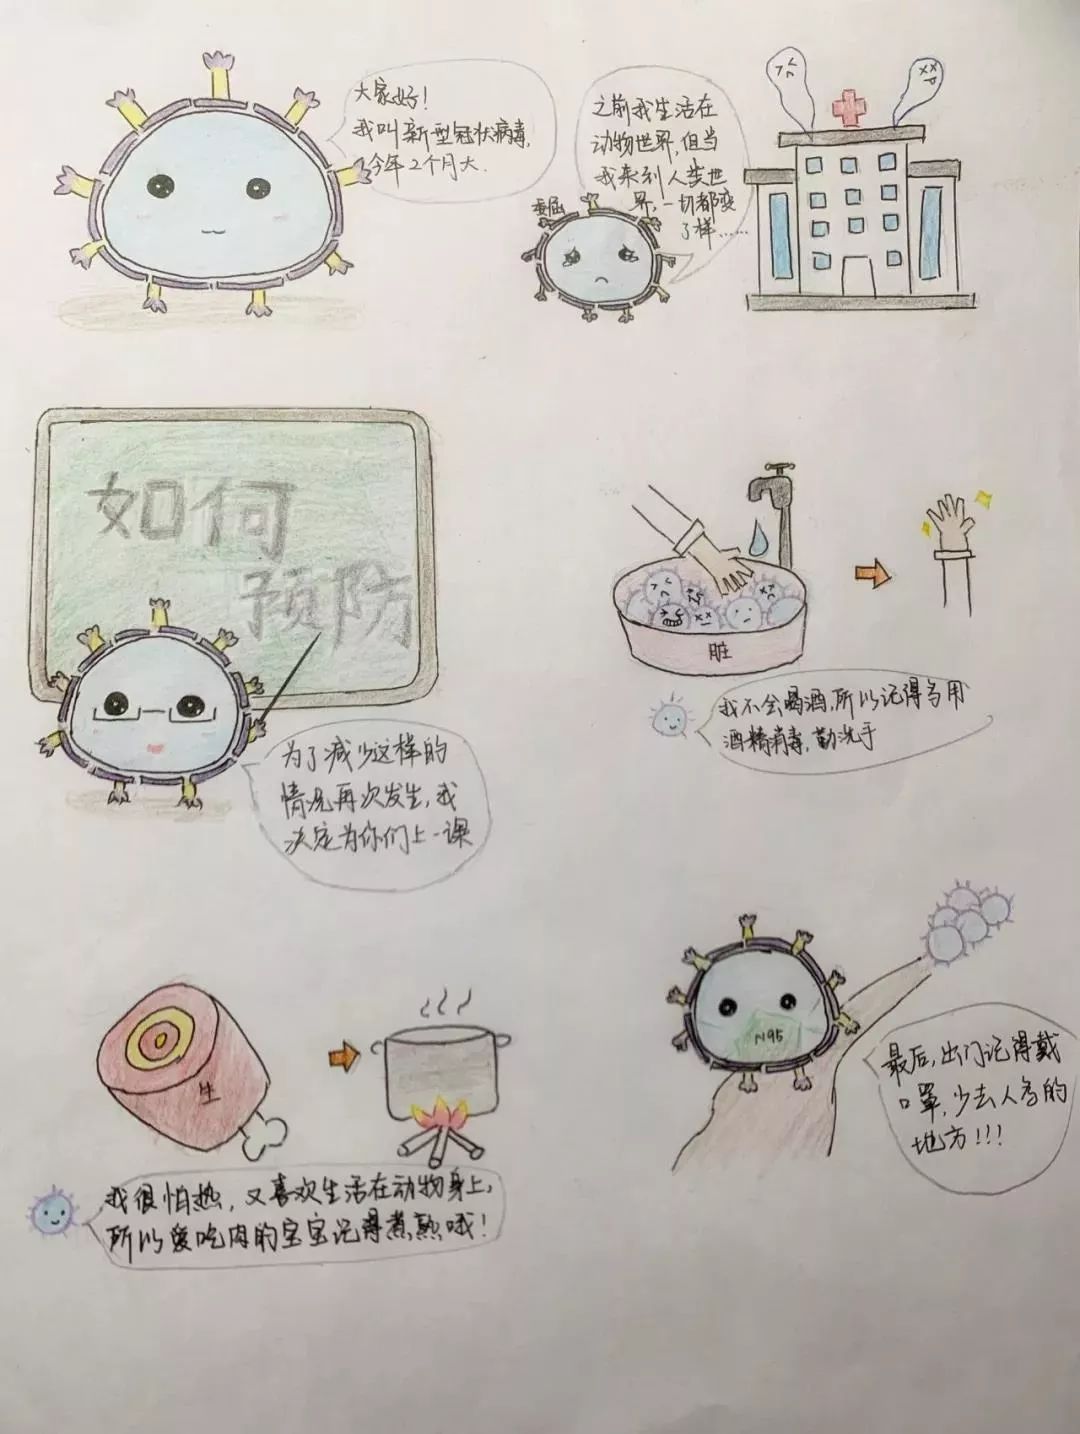 大家好！
我叫新型冠状病毒，
今年2个月大．
之前我生活在
动物世界，但当
我来到人类世
界，一切都变
了样……
委屈
如何
预防
为了减少这样的
情况再次发生，我
决定为你们上一课
脏
我不会喝酒，所以记得多用
酒精消毒，勤洗手
生
我很怕热，又喜欢生活在动物身上，
所以爱吃肉的宝宝记得煮熟哦！
N95
最后，出门记得戴
口罩，少去人多的
地方！！！